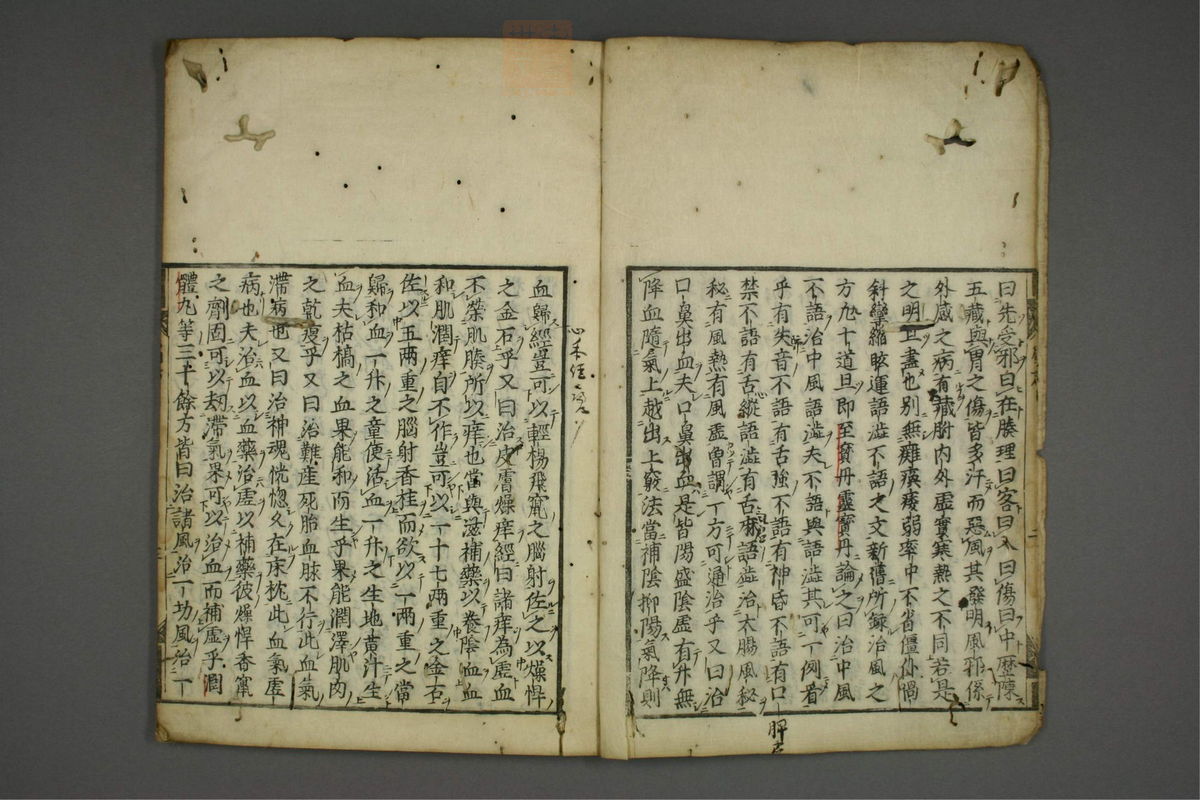 曰先受邪曰在腠理曰客曰入曰傷曰中歷陳
五藏與胃之傷皆多汗而惡風其發明風邪係
外感之病有藏腑內外虛實寒熱之不同若是
之明且盡也別無癱瘓痿弱卒中不省僵仆喎
斜攣縮眩運語澁不語之文新舊所錄治風之
方凢十道旦即至寶丹靈寶丹論之曰治中風
不語治中風語澁夫不語與語澁其可一例看
乎有失音不語有舌強不語有神昏不語有口
禁不語有舌縱語澁有舌麻語澁治大腸風秘
秘有風熱有風虛曾謂一方可通治乎又曰治
口鼻出血夫口鼻出血是皆陽盛陰虛有升無
降血隨氣上越出上竅法當補陰抑陽氣降則
血歸經豈可以輕楊飛竄之腦射佐之以燥悍
之金石乎又曰治皮膚燥痒經曰諸痒為虛血
不榮肌腠所以痒也當與滋補藥以養陰血血
和肌潤痒自不作豈可以一十七兩重之金石
佐以五兩重之腦射香桂而欲以一兩重之當
歸和血一升之童便活血一升之生地黃汁生
血夫枯槁之血果能和而生乎果能潤澤肌肉
之乾瘦乎又曰治難產死胎血脉不行此血氣
滯病也又曰治神魂恍惚久在床枕此血氣虛
病也夫治血以血藥治虛以補藥彼燥悍香竄
之劑固可以刧滯氣果可以治血而補虛乎潤
體丸等三十餘方皆曰治諸風治一切風治一